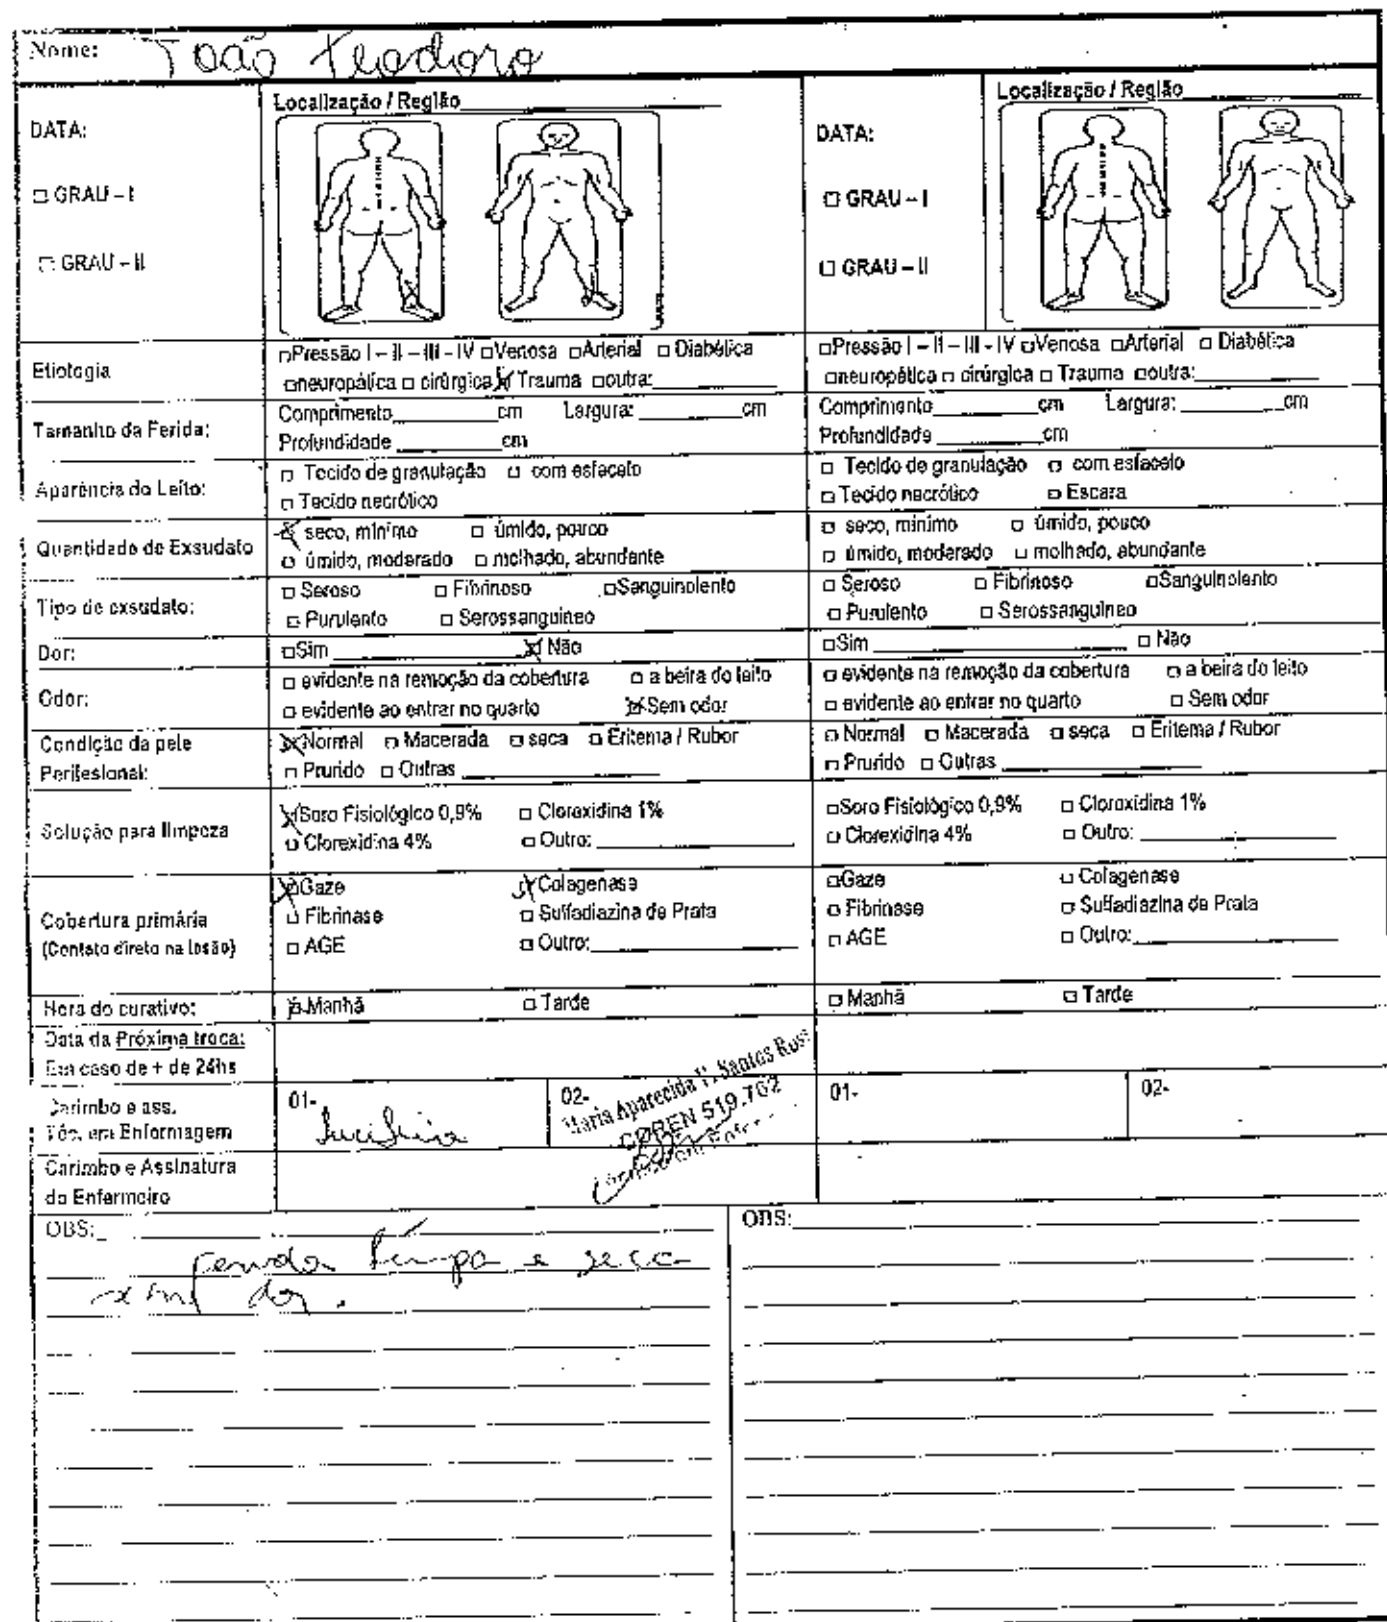 Nome: João Teodoro
DATA:
□ GRAU – I
□ GRAU – II
Localização / Região
DATA:
□ GRAU – I
□ GRAU – II
Localização / Região
Etiologia
□Pressão I – II – III - IV □Venosa □Arterial □ Diabética
□neuropática □ cirúrgica X Trauma □outra:
□Pressão I – II – III - IV □Venosa □Arterial □ Diabética
□neuropática □ cirúrgica □ Trauma □outra:
Tamanho da Ferida:
Comprimento cm Largura: cm
Profundidade cm
Comprimento cm Largura: cm
Profundidade cm
Aparência do Leito:
□ Tecido de granulação □ com esfacelo
□ Tecido necrótico
□ Tecido de granulação □ com esfacelo
□ Tecido necrótico □ Escara
Quantidade de Exsudato
X seco, mínimo □ úmido, pouco
□ úmido, moderado □ molhado, abundante
□ seco, mínimo □ úmido, pouco
□ úmido, moderado □ molhado, abundante
Tipo de exsudato:
□ Seroso □ Fibrinoso □Sanguinolento
□ Purulento □ Serossanguíneo
□ Seroso □ Fibrinoso □Sanguinolento
□ Purulento □ Serossanguíneo
Dor:
□Sim X Não
□Sim □ Não
Odor:
□ evidente na remoção da cobertura □ a beira do leito
□ evidente ao entrar no quarto X Sem odor
□ evidente na remoção da cobertura □ a beira do leito
□ evidente ao entrar no quarto □ Sem odor
Condição da pele
Perilesional:
X Normal □ Macerada □ seca □ Eritema / Rubor
□ Prurido □ Outras
□ Normal □ Macerada □ seca □ Eritema / Rubor
□ Prurido □ Outras
Solução para limpeza
X Soro Fisiológico 0,9% □ Cloroxidina 1%
□ Clorexidina 4% □ Outro:
□Soro Fisiológico 0,9% □ Cloroxidina 1%
□ Clorexidina 4% □ Outro:
Cobertura primária
(Contato direto na lesão)
X Gaze X Colagenase
□ Fibrinase □ Sulfadiazina de Prata
□ AGE □ Outro:
□Gaze □ Colagenase
□ Fibrinase □ Sulfadiazina de Prata
□ AGE □ Outro:
Hora do curativo:
X Manhã □ Tarde
□ Manhã □ Tarde
Data da Próxima troca:
Em caso de + de 24hs
Carimbo e ass.
Téc. em Enfermagem
01-
02-
Maria Aparecida Santos
COREN 519.762
01-
02-
Carimbo e Assinatura
do Enfermeiro
OBS:
Ferida limpa e seca
sem dor.
OBS: